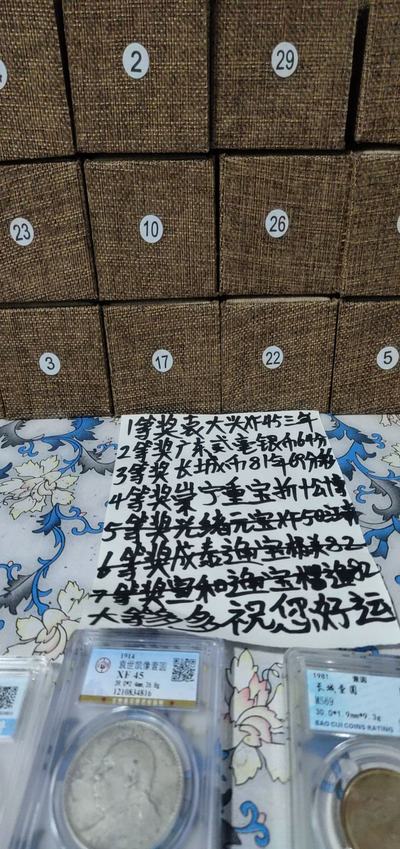 2
29
23
10
26
3
17
22
5
1等奖袁大头XF45三年
2等奖广东贰毫银币69分
3等奖长城币81年69分
4等奖崇宁重宝折十公博
5等奖光绪元宝XF50
6等奖咸泰通宝 82
7等奖宣和通宝 82
大奖多多祝您好运
1914
袁世凯像壹圆
XF 45
39.0*2.4mm,26.8g
1210834816
1981 壹圆
长城壹圆
MS69
30.0*1.9mm*9.3g
BAO CUI COINS RATING